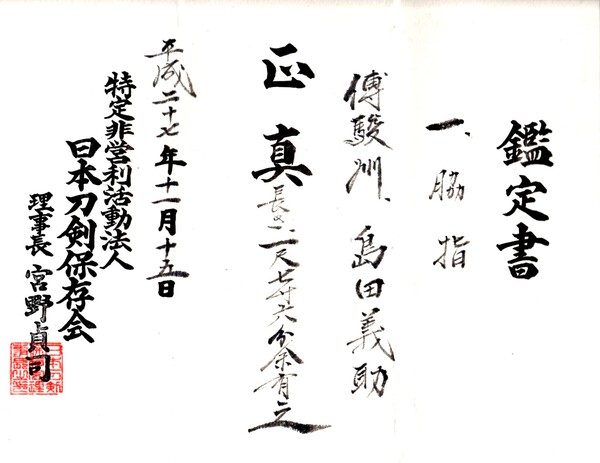 鑑定書
一、脇指
傳駿州、島田義助
正真
長サ一尺七寸六分余有之
平成二十七年十一月十五日
特定非営利活動法人
日本刀剣保存会
理事長 宮野貞司